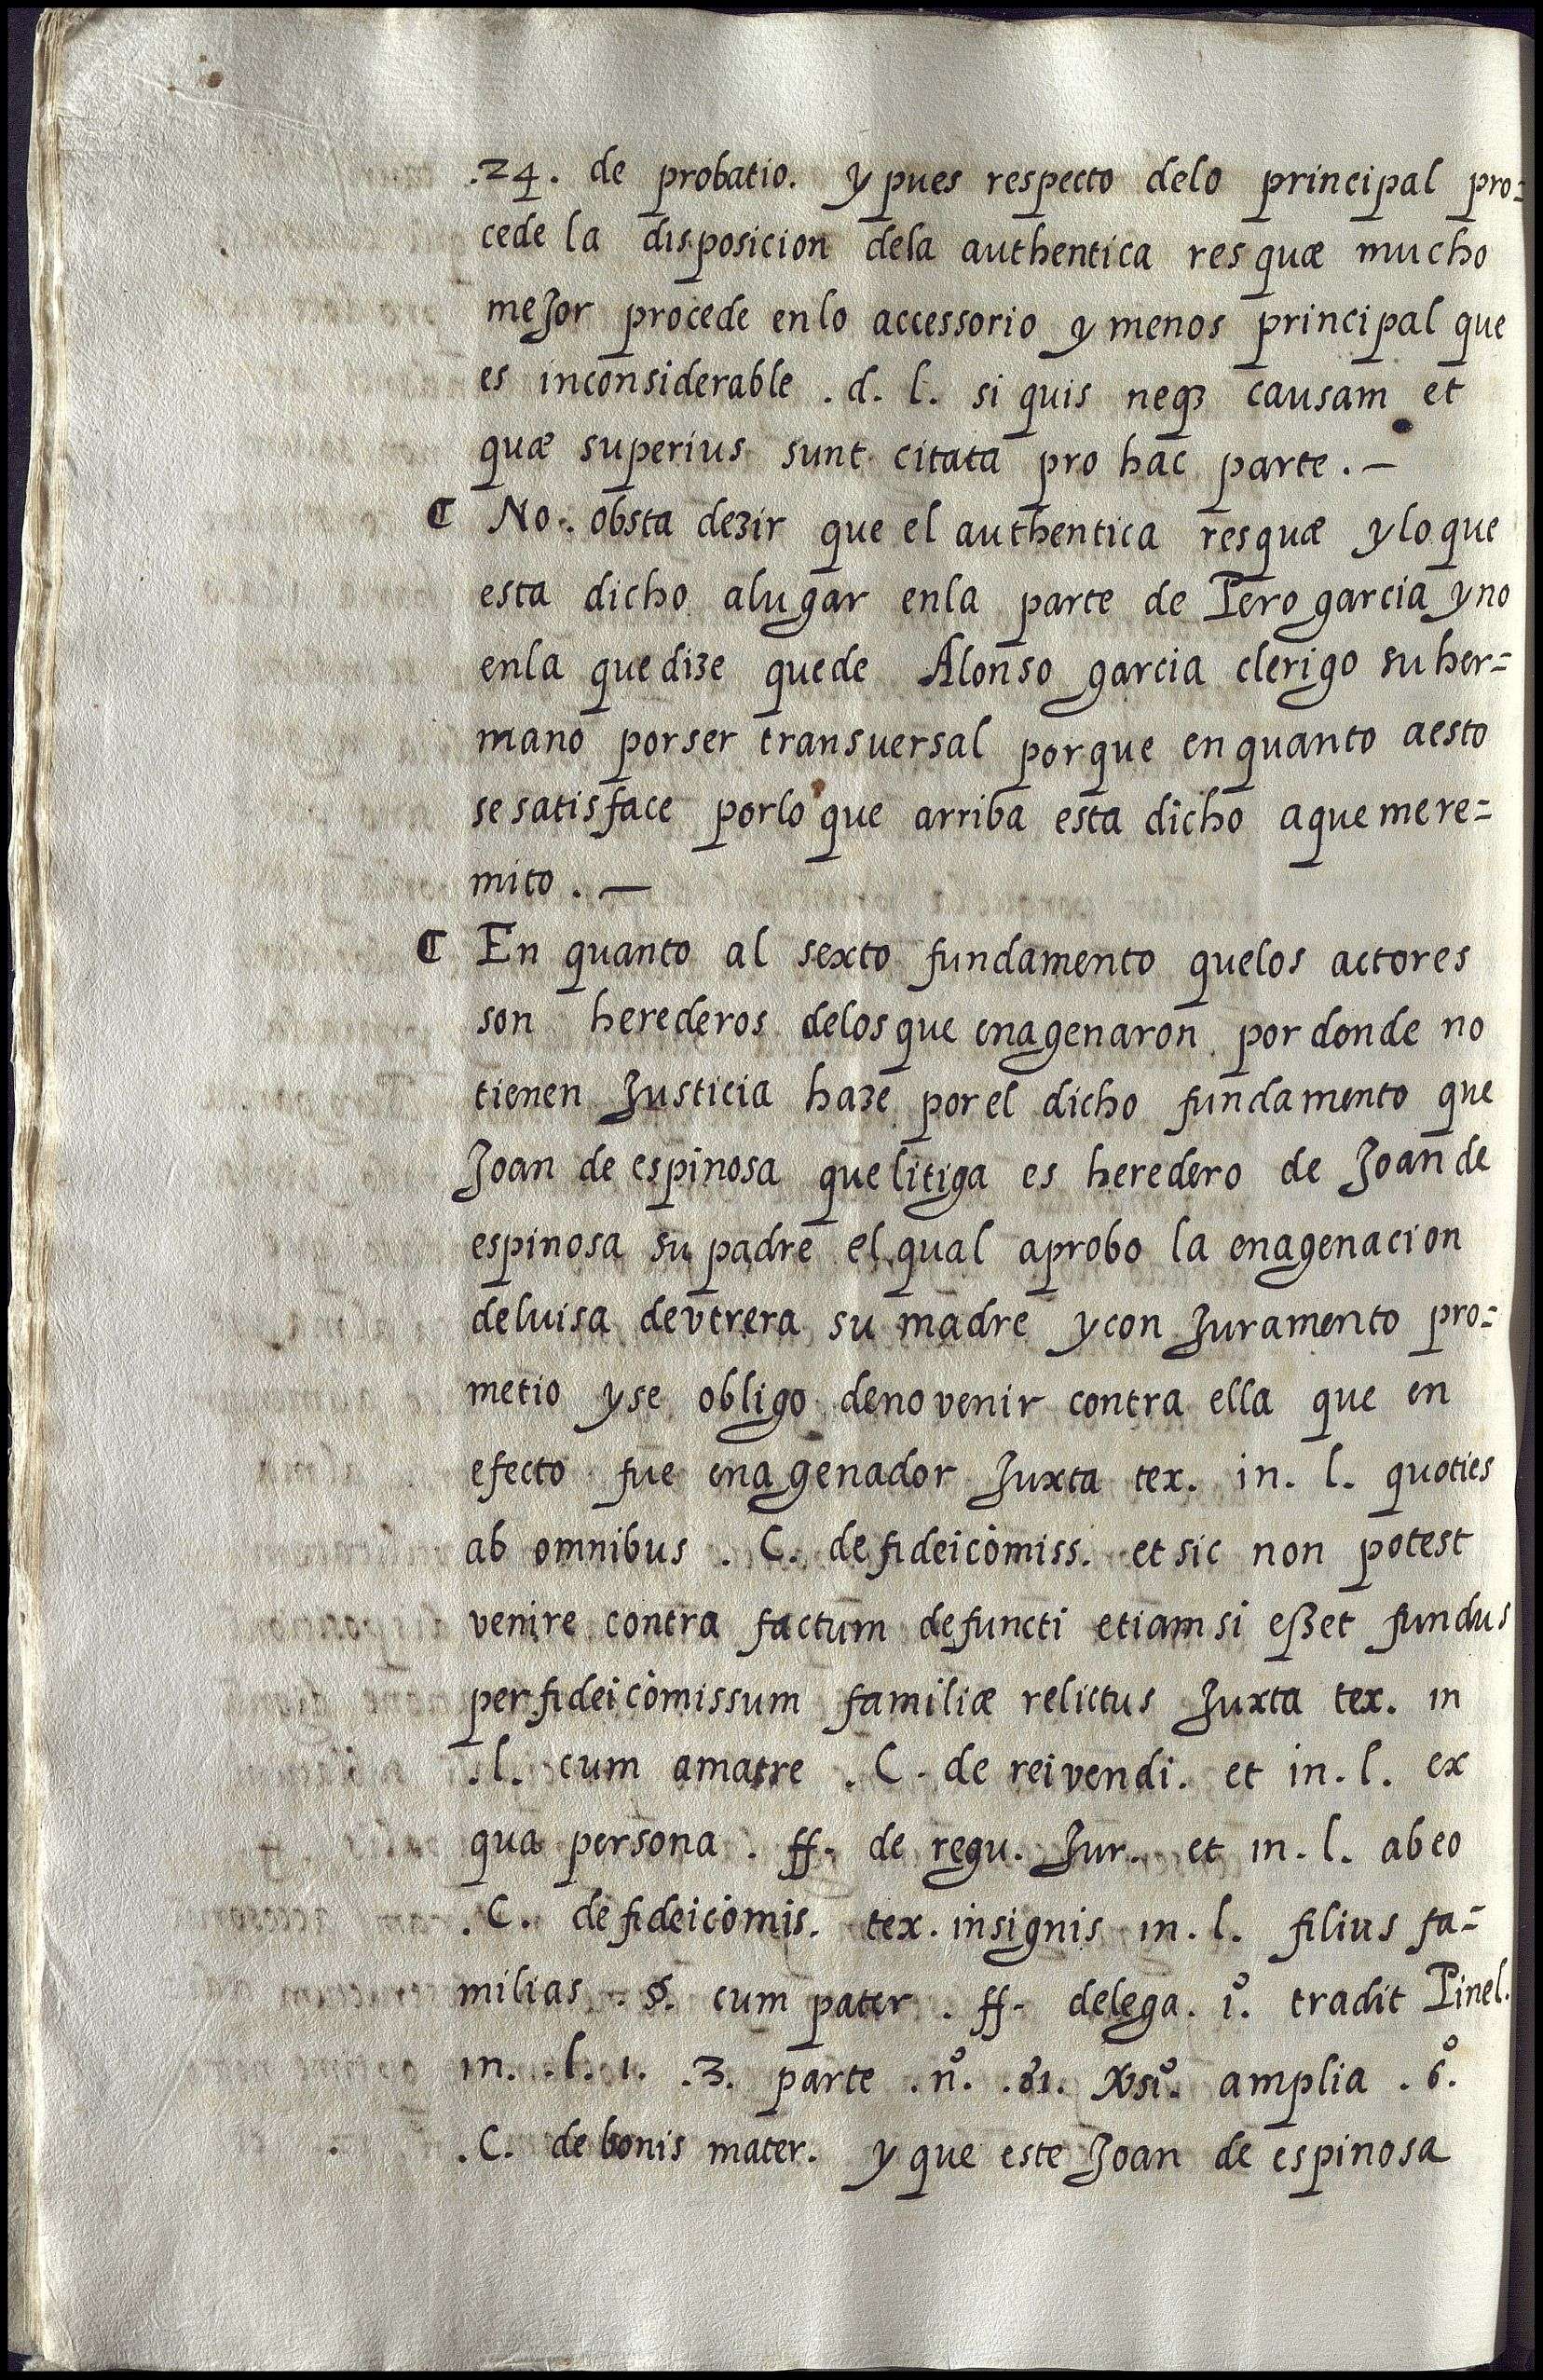 .24. de probatio. y pues respecto delo principal pro=
cede la disposicion dela authentica res quæ mucho
meJor procede enlo accessorio y menos principal que
es inconsiderable .d. l. si quis neqꝫ causam et
quæ superius sunt citata pro hac parte. —
¶ No. obsta deʒir que el authentica resquæ y lo que
esta dicho alugar enla parte de Pero garcia y no
enla que diʒe quede Alonso garcia clerigo su her=
mano porser transuersal porque en quanto aesto
se satisface porlo que arriba esta dicho aque me re=
mito. —
¶ En quanto al sexto fundamento quelos actores
son herederos delos que enagenaron por donde no
tienen Justicia haʒe por el dicho fundamento que
Joan de espinosa que litiga es heredero de Joan de
espinosa su padre el qual aprobo la enagenacion
deluisa devtrera su madre y con Juramento pro=
metio y se obligo deno venir contra ella que en
efecto fue enagenador Juxta tex. in. l. quoties
ab omnibus . C. de fideicòmiss. et sic non potest
venire contra factum defuncti etiam si eßet fundus
per fideicòmissum familiæ relictus Juxta tex. in
.l. cum amatre . C. de rei vendi. et in. l. ex
qua persona . ff. de regu. Jur. et in. l. ab eo
.C. de fideicòmis. tex. insignis in. l. filius fa=
milias . §. cum pater . ff. delega. 1º. tradit Pinel.
in. .l. 1. .3. parte .nº. .81. amplia .6º.
.C. de bonis mater. y que este Joan de espinosa